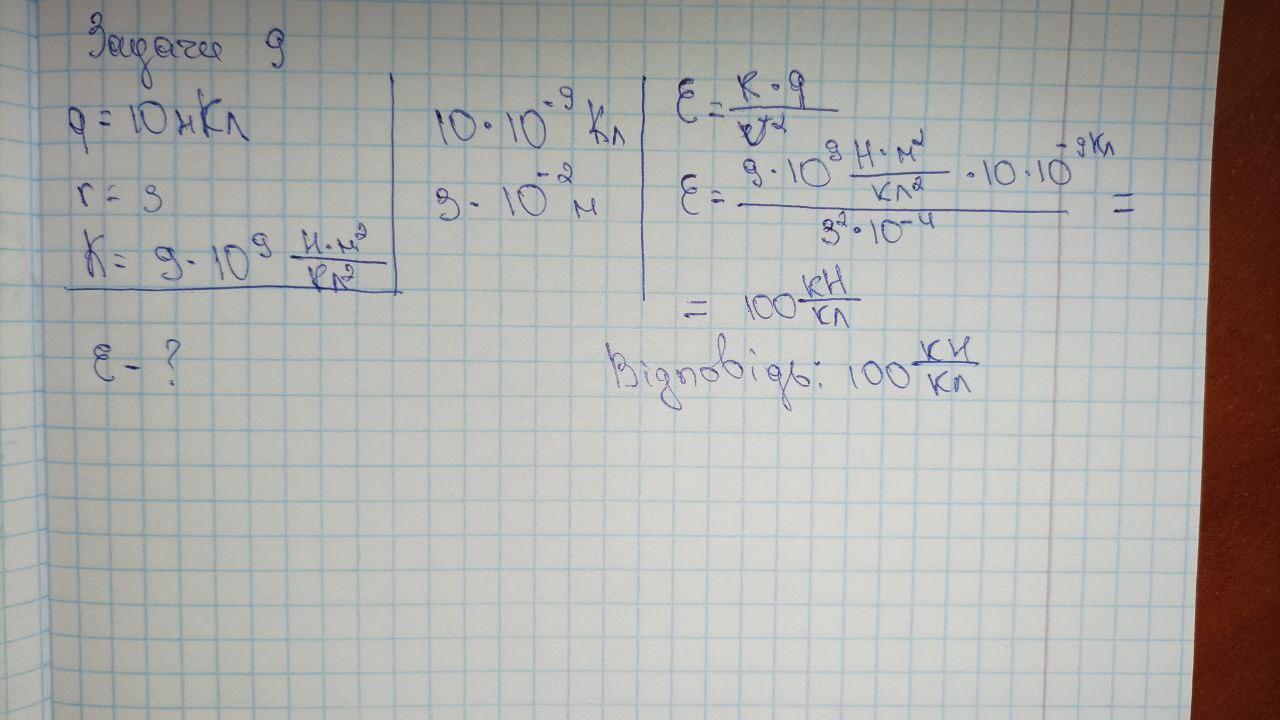 Задача 9
q = 10 нКл
r = 3
K = 9·10⁹ Н·м²/Кл²
E - ?
10·10⁻⁹ Кл
3·10⁻² м
E = K·q/r²
E = 9·10⁹ Н·м²/Кл² ·10·10⁻⁹Кл / 3²·10⁻⁴ =
= 100 кН/Кл
Відповідь: 100 кН/Кл